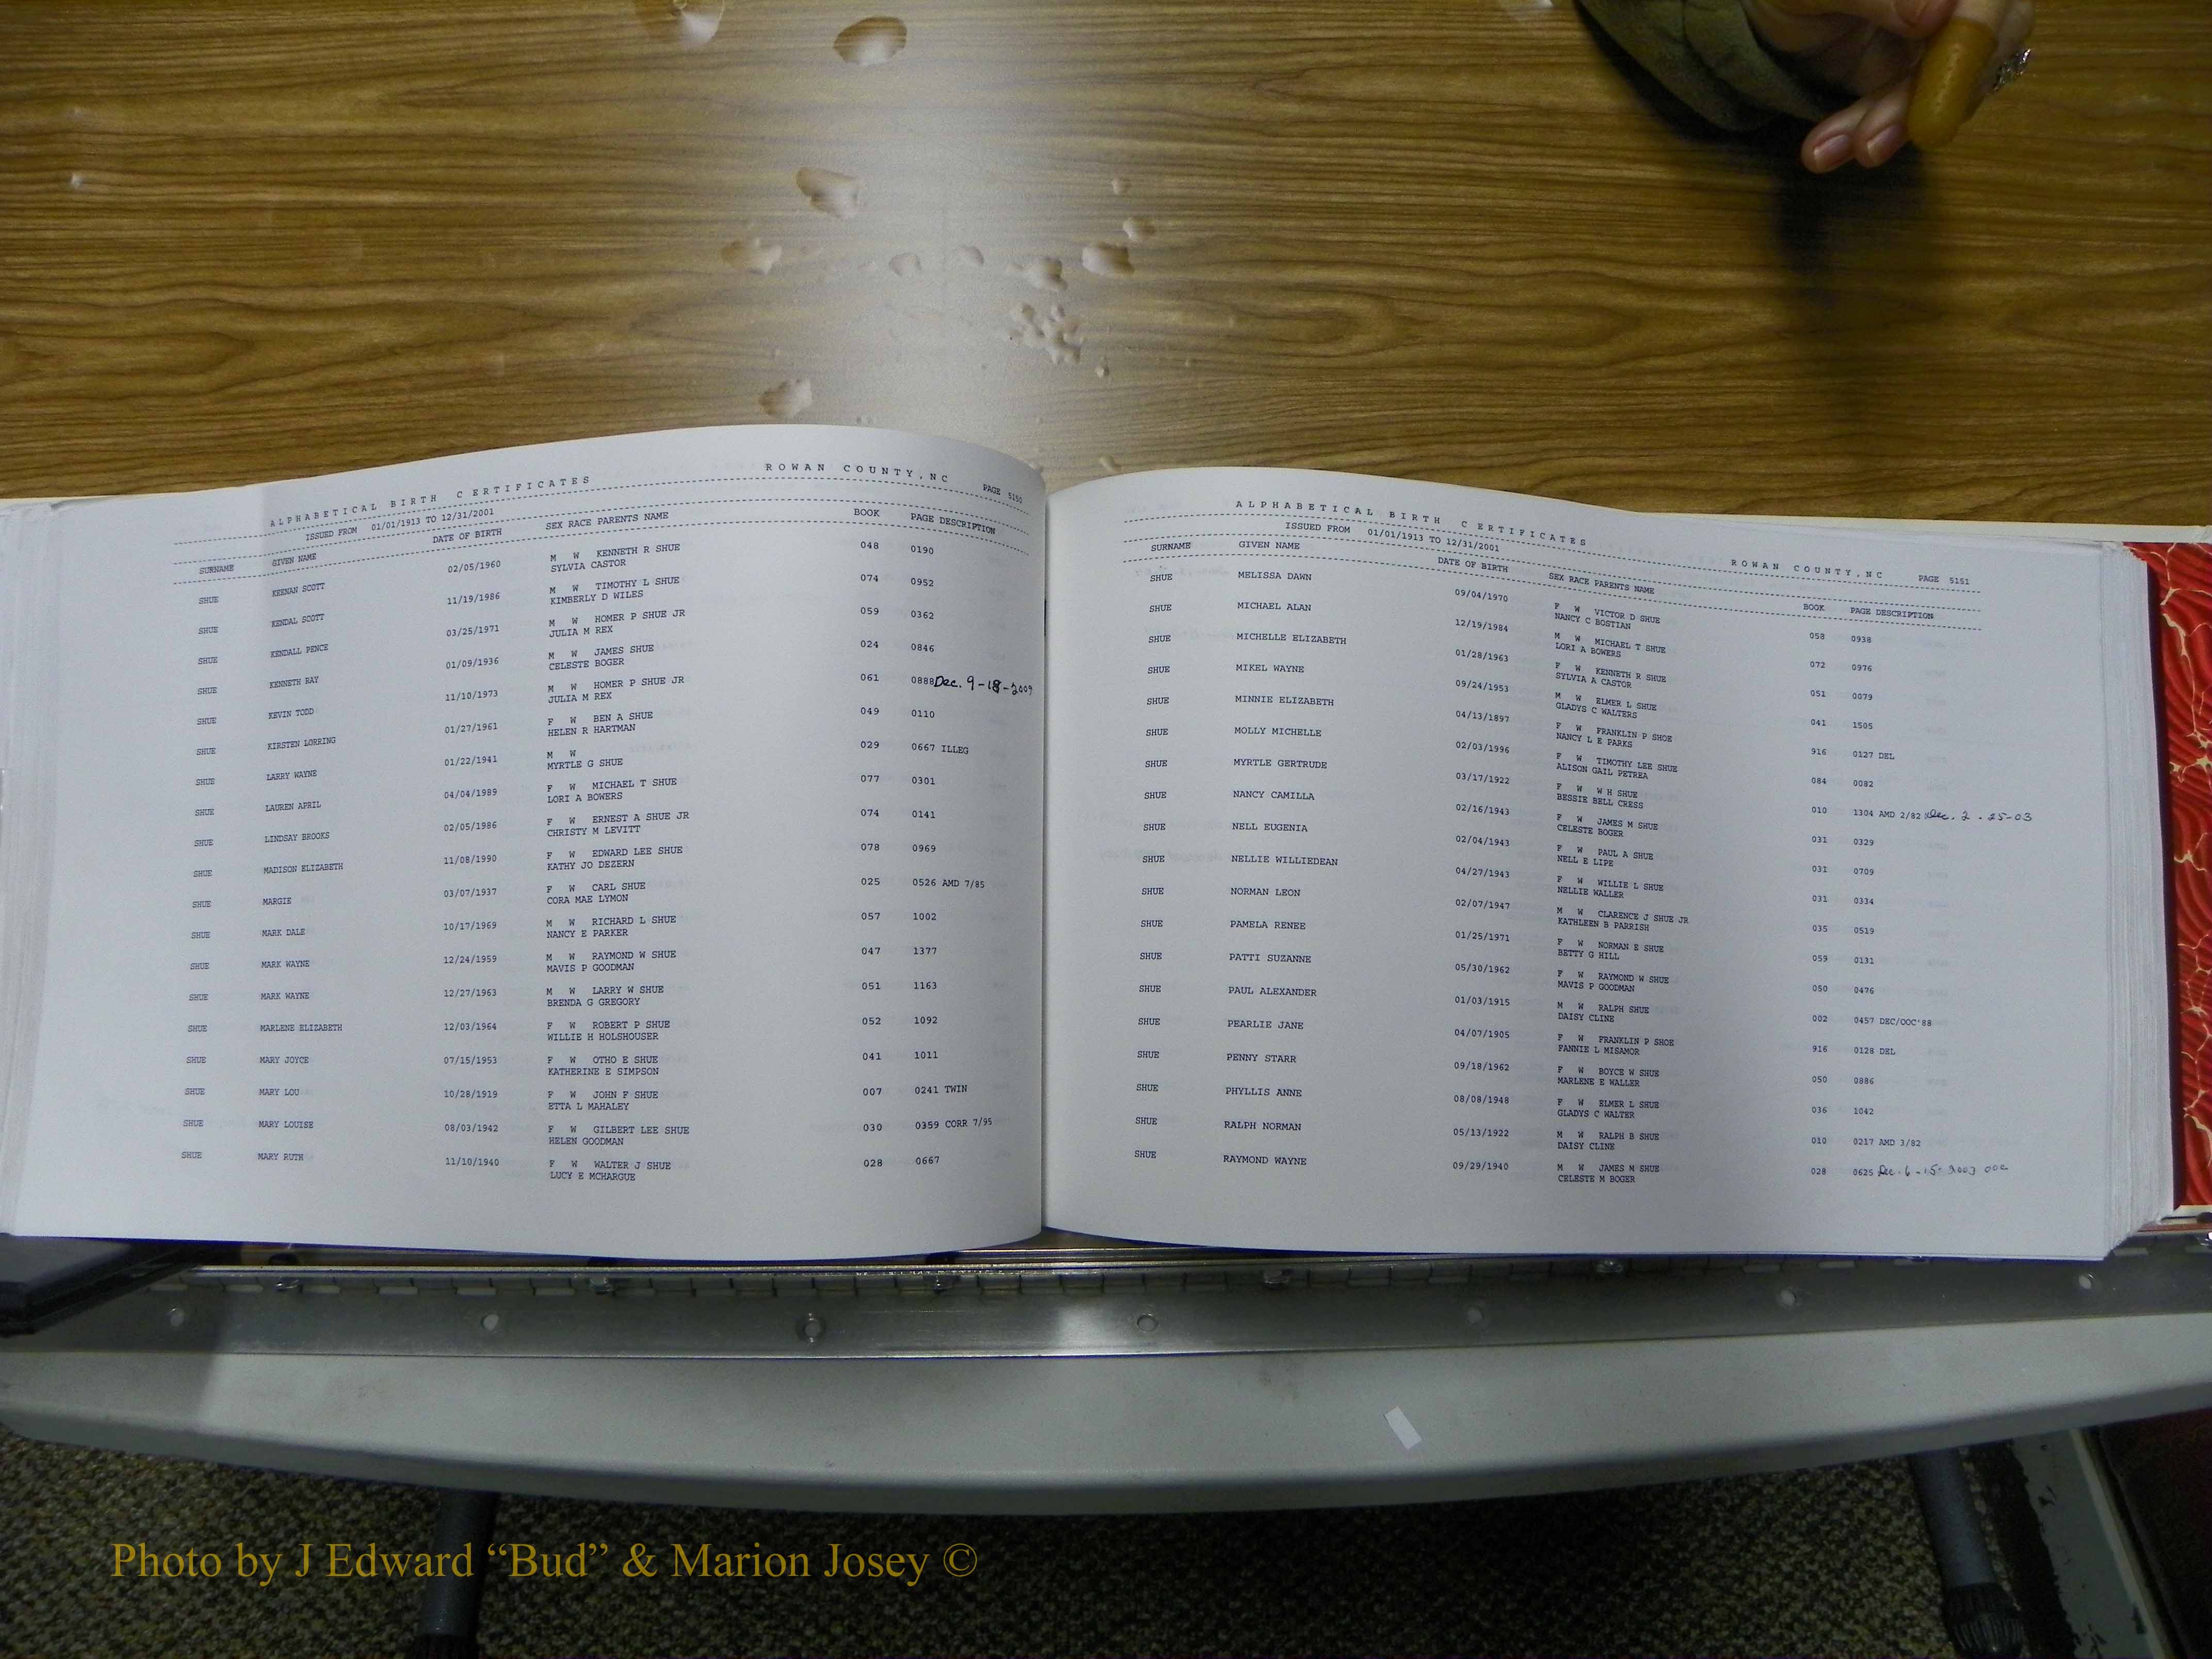 ALPHABETICAL BIRTH CERTIFICATES ROWAN COUNTY,NC PAGE 5150
ISSUED FROM 01/01/1913 TO 12/31/2001
SURNAME GIVEN NAME DATE OF BIRTH SEX RACE PARENTS NAME BOOK PAGE DESCRIPTION
SHUE KEENAN SCOTT 02/05/1960 M W KENNETH R SHUE 048 0190
SYLVIA CASTOR
SHUE KENDAL SCOTT 11/19/1986 M W TIMOTHY L SHUE 074 0952
KIMBERLY D WILES
SHUE KENDALL PENCE 03/25/1971 M W HOMER P SHUE JR 059 0362
JULIA M REX
SHUE KENNETH RAY 01/09/1936 M W JAMES SHUE 024 0846
CELESTE BOGER
SHUE KEVIN TODD 11/10/1973 M W HOMER P SHUE JR 061 0888 Dec. 9-18-2009
JULIA M REX
SHUE KIRSTEN LORRING 01/27/1961 F W BEN A SHUE 049 0110
HELEN R HARTMAN
SHUE LARRY WAYNE 01/22/1941 M W 029 0667 ILLEG
MYRTLE G SHUE
SHUE LAUREN APRIL 04/04/1989 F W MICHAEL T SHUE 077 0301
LORI A BOWERS
SHUE LINDSAY BROOKS 02/05/1986 F W ERNEST A SHUE JR 074 0141
CHRISTY M LEVITT
SHUE MADISON ELIZABETH 11/08/1990 F W EDWARD LEE SHUE 078 0969
KATHY JO DEZERN
SHUE MARGIE 03/07/1937 F W CARL SHUE 025 0526 AMD 7/85
CORA MAE LYMON
SHUE MARK DALE 10/17/1969 M W RICHARD L SHUE 057 1002
NANCY E PARKER
SHUE MARK WAYNE 12/24/1959 M W RAYMOND W SHUE 047 1377
MAVIS P GOODMAN
SHUE MARK WAYNE 12/27/1963 M W LARRY W SHUE 051 1163
BRENDA G GREGORY
SHUE MARLENE ELIZABETH 12/03/1964 F W ROBERT P SHUE 052 1092
WILLIE H HOLSHOUSER
SHUE MARY JOYCE 07/15/1953 F W OTHO E SHUE 041 1011
KATHERINE E SIMPSON
SHUE MARY LOU 10/28/1919 F W JOHN F SHUE 007 0241 TWIN
ETTA L MAHALEY
SHUE MARY LOUISE 08/03/1942 F W GILBERT LEE SHUE 030 0359 CORR 7/95
HELEN GOODMAN
SHUE MARY RUTH 11/10/1940 F W WALTER J SHUE 028 0667
LUCY E MCHARGUE
ALPHABETICAL BIRTH CERTIFICATES ROWAN COUNTY,NC PAGE 5151
ISSUED FROM 01/01/1913 TO 12/31/2001
SURNAME GIVEN NAME DATE OF BIRTH SEX RACE PARENTS NAME BOOK PAGE DESCRIPTION
SHUE MELISSA DAWN 09/04/1970 F W VICTOR D SHUE 058 0938
NANCY C BOSTIAN
SHUE MICHAEL ALAN 12/19/1984 M W MICHAEL T SHUE 072 0976
LORI A BOWERS
SHUE MICHELLE ELIZABETH 01/28/1963 F W KENNETH R SHUE 051 0079
SYLVIA A CASTOR
SHUE MIKEL WAYNE 09/24/1953 M W ELMER L SHUE 041 1505
GLADYS C WALTERS
SHUE MINNIE ELIZABETH 04/13/1897 F W FRANKLIN P SHOE 916 0127 DEL
NANCY L E PARKS
SHUE MOLLY MICHELLE 02/03/1996 F W TIMOTHY LEE SHUE 084 0082
ALISON GAIL PETREA
SHUE MYRTLE GERTRUDE 03/17/1922 F W W H SHUE 010 1304 AMD 2/82 Dec. 2.25-03
BESSIE BELL CRESS
SHUE NANCY CAMILLA 02/16/1943 F W JAMES M SHUE 031 0329
CELESTE BOGER
SHUE NELL EUGENIA 02/04/1943 F W PAUL A SHUE 031 0709
NELL E LIPE
SHUE NELLIE WILLIEDEAN 04/27/1943 F W WILLIE L SHUE 031 0334
NELLIE WALLER
SHUE NORMAN LEON 02/07/1947 M W CLARENCE J SHUE JR 035 0519
KATHLEEN B PARRISH
SHUE PAMELA RENEE 01/25/1971 F W NORMAN E SHUE 059 0131
BETTY G HILL
SHUE PATTI SUZANNE 05/30/1962 F W RAYMOND W SHUE 050 0476
MAVIS P GOODMAN
SHUE PAUL ALEXANDER 01/03/1915 M W RALPH SHUE 002 0457 DEC/OOC'88
DAISY CLINE
SHUE PEARLIE JANE 04/07/1905 F W FRANKLIN P SHOE 916 0128 DEL
FANNIE L MISAMOR
SHUE PENNY STARR 09/18/1962 F W BOYCE W SHUE 050 0886
MARLENE E WALLER
SHUE PHYLLIS ANNE 08/08/1948 F W ELMER L SHUE 036 1042
GLADYS C WALTER
SHUE RALPH NORMAN 05/13/1922 M W RALPH B SHUE 010 0217 AMD 3/82
DAISY CLINE
SHUE RAYMOND WAYNE 09/29/1940 M W JAMES M SHUE 028 0625 Dec. 6-15-2003 OOC
CELESTE M BOGER
Photo by J Edward “Bud” & Marion Josey ©